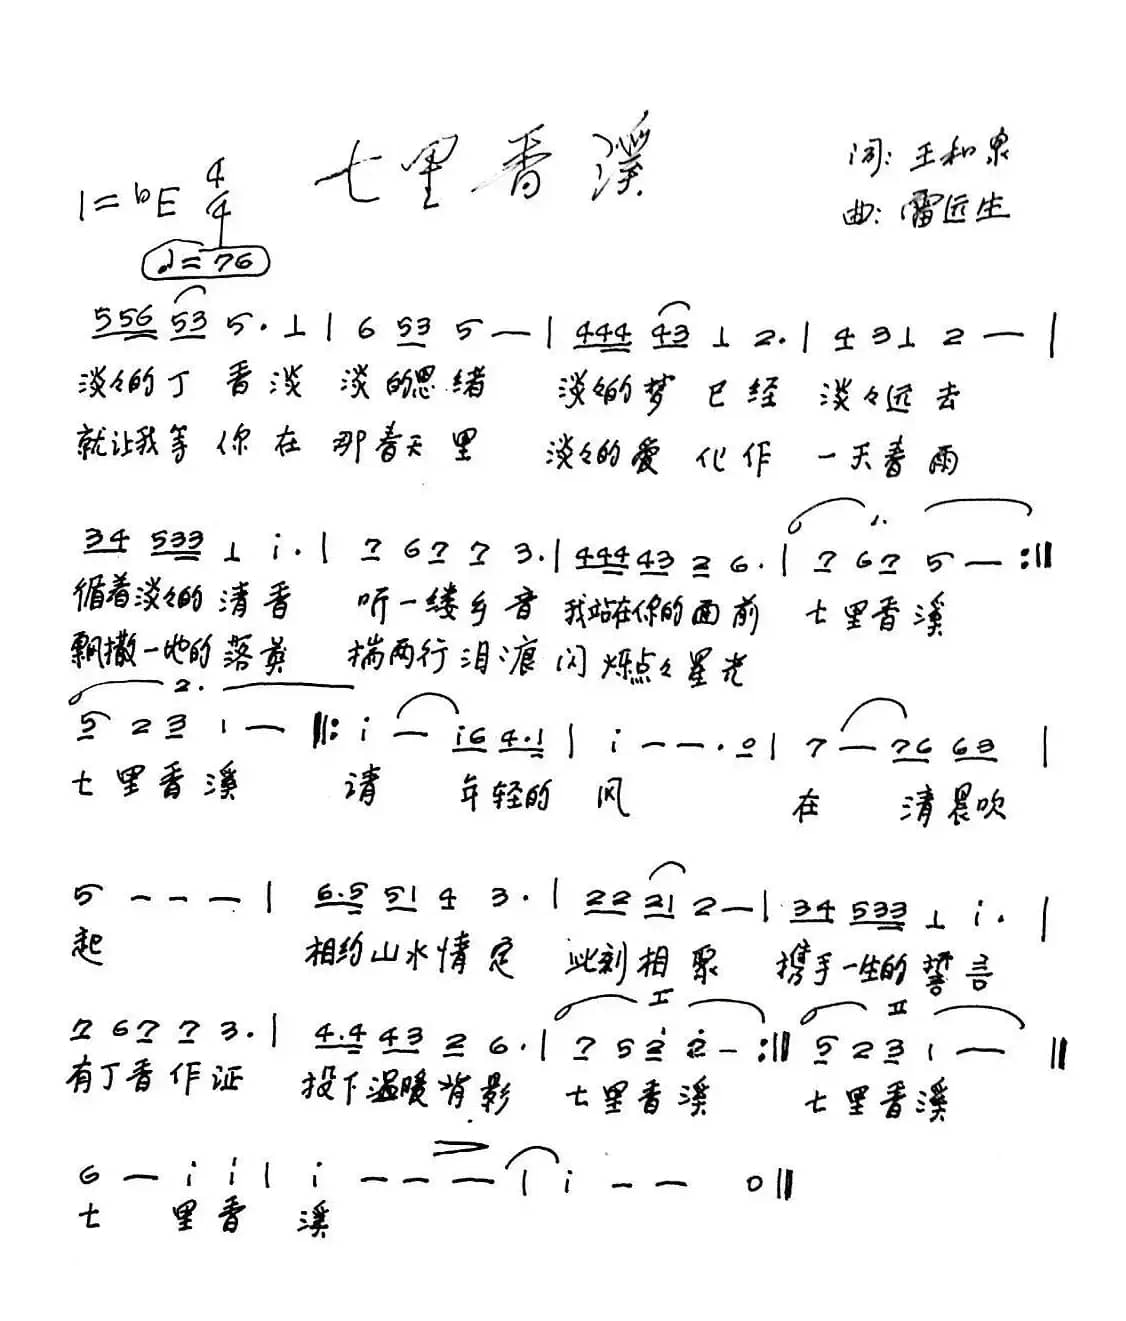 七里香溪
词: 王和泉
1=bE 4/4
曲: 雷远生
♩=76
556 53 5. 1 | 6 53 5 — | 444 43 1 2. | 4 31 2 — |
淡々的丁香淡 淡的思绪 淡々的梦已经 淡々远去
就让我等你在 那春天里 淡々的爱化作 一天春雨
34 533 1 i. | 7 67 7 3. | 444 43 2 6. | 1. 7 67 5 — :||
循着淡々的清香 听一缕乡音 我站在你的面前 七里香溪
飘撒一地的落英 揣两行泪痕 闪烁点々星光
2.
5 2 3 1 — ||: i — i6 4.1 | i — — . 0 | 7 — 76 63 |
七里香溪 请 年轻的 风 在 清晨吹
5 — — — | 6.5 51 4 3. | 22 21 2 — | 34 533 1 i. |
起 相约山水情定 此刻相聚 携手一生的誓言
I II
7 67 7 3. | 4.4 43 2 6. | 7 5 2 2 — :|| 5 2 3 1 — ||
有丁香作证 投下温暖背影 七里香溪 七里香溪
6 — i i | i — — — | i — — 0 ||
七 里香 溪